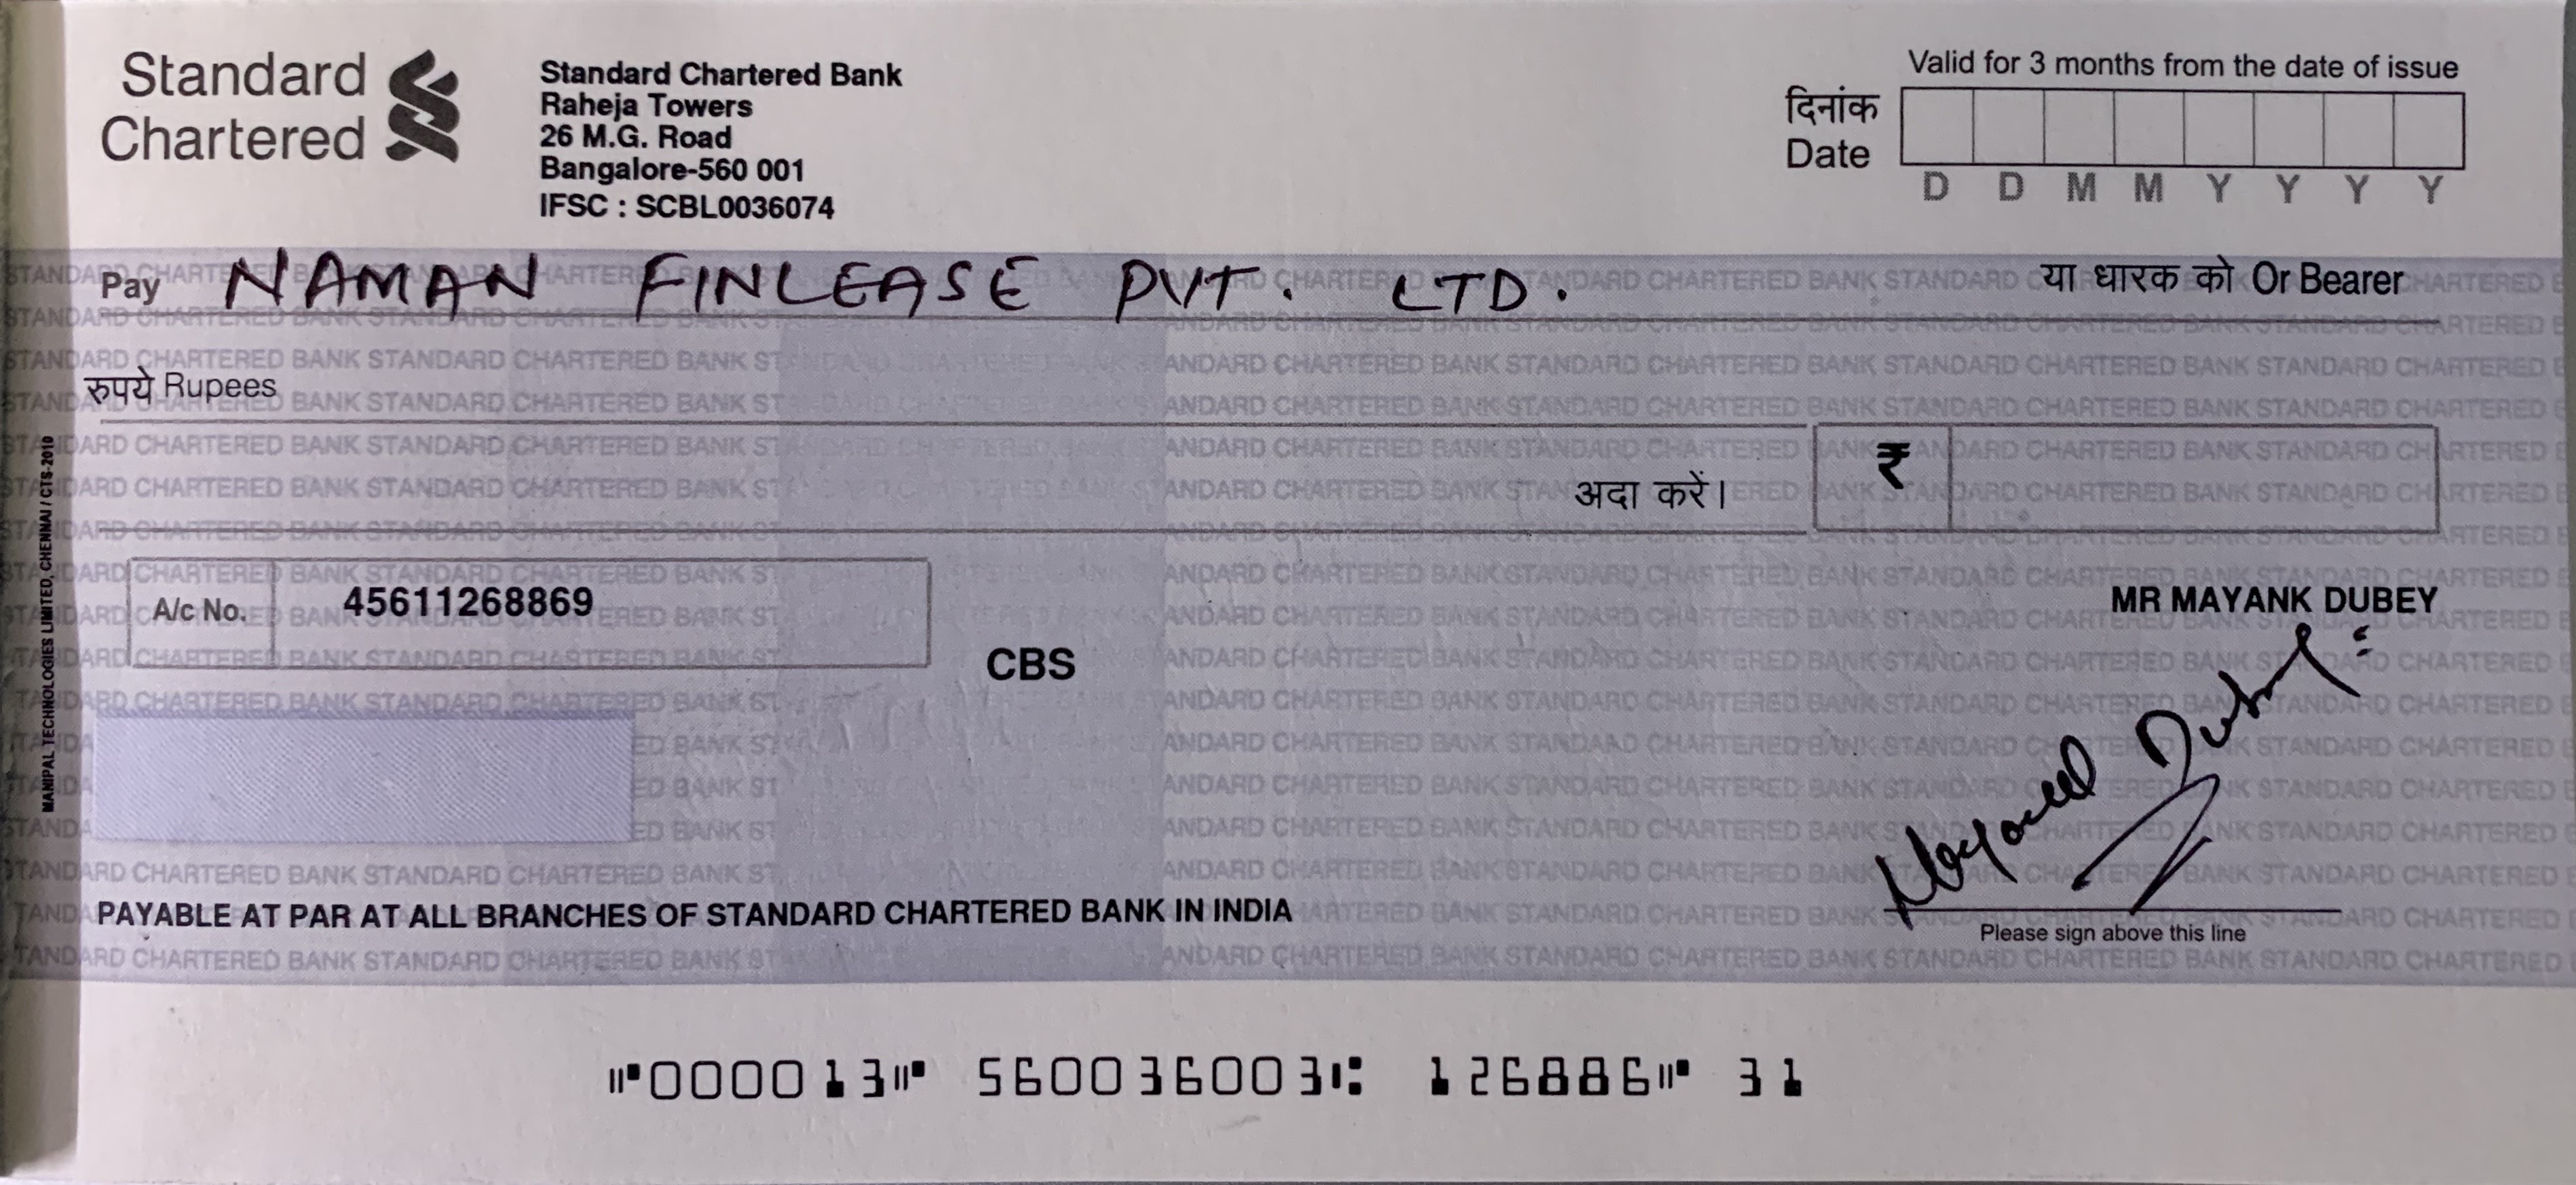 Standard
Chartered
Standard Chartered Bank
Raheja Towers
26 M.G. Road
Bangalore-560 001
IFSC : SCBL0036074
Valid for 3 months from the date of issue
दिनांक
Date
D D M M Y Y Y Y
Pay NAMAN FINLEASE PVT. LTD. या धारक को Or Bearer
रुपये Rupees
अदा करें। ₹
A/c No. 45611268869
MR MAYANK DUBEY
CBS
Mayank Dubey
PAYABLE AT PAR AT ALL BRANCHES OF STANDARD CHARTERED BANK IN INDIA
Please sign above this line
MANIPAL TECHNOLOGIES LIMITED, CHENNAI / CTS-2010
⑈000013⑈ 560036003⑆ 126886⑈ 31